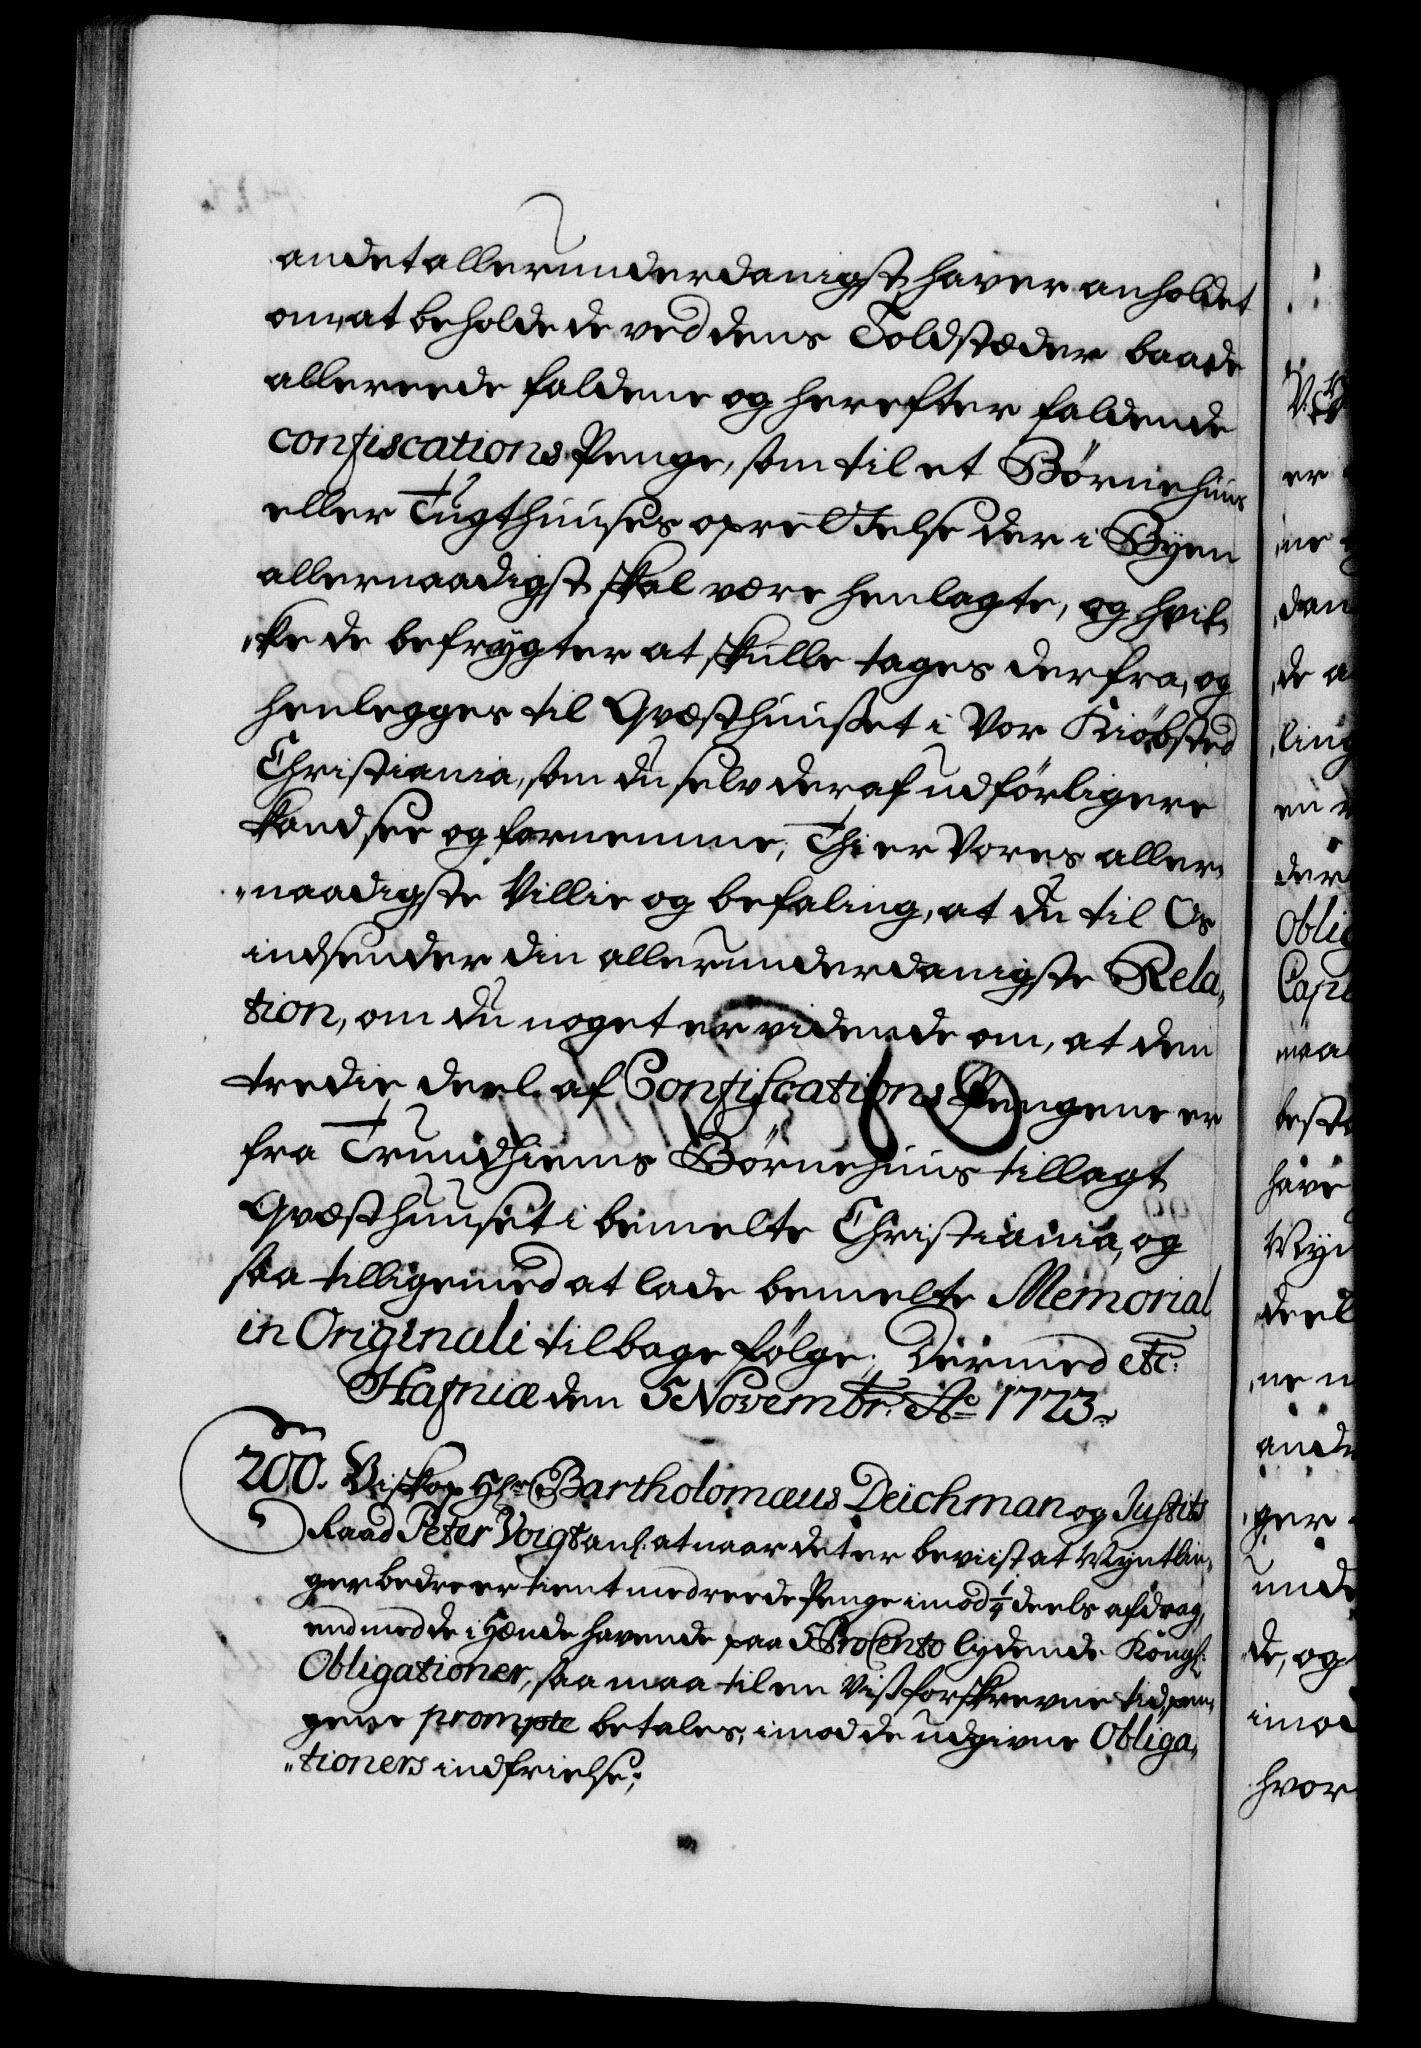 andet allerunderdanigst haver anholdet
om, at beholde de ved dens Toldstæder baade
allereede faldene og herefter faldende
confiscations Penge, som til et Börnehuus
eller Tugthuuses oprettelse der i Byen
allernaadigst skal være henlagte, og hvil-
„ke de befrygter at skulle tages derfra, og
henlegges til Qvæsthuuset i Vor Kiöbsted
Christiania, som du selv deraf udförligere
kand see og fornemme; Thi er Vores aller„
„naadigste Villie og befaling, at du til Os
indsender din allerunderdanigste Rela„
tion, om du noget er vidende om, at den
tredie deel af Confiscations Pengene er
fra Trundhiems Börnehuus tillagt
Qvæsthuuset i bemelte Christiania, og
saa tilligemed at lade bemelte Memorial
in Originali tilbage fölge; Dermed etc:
Hafniæ den 5 Novembr: Ao 1723.
200. Biskop Hr. Bartholomæus Deichman og Justits
Raad Peter Voigt anl: at naar det er beviist at Myntlin„
ger bedre er tient med reede Penge imod 1/4 deels afdrag,
end med de i Hænde havende paa 5 ProCento lydende Kongl:
Obligationer, saa maa til en Viss forskreven tid, pen„
gene prompte betales, imod de udgivne Obliga„
„tioners indfrielse;